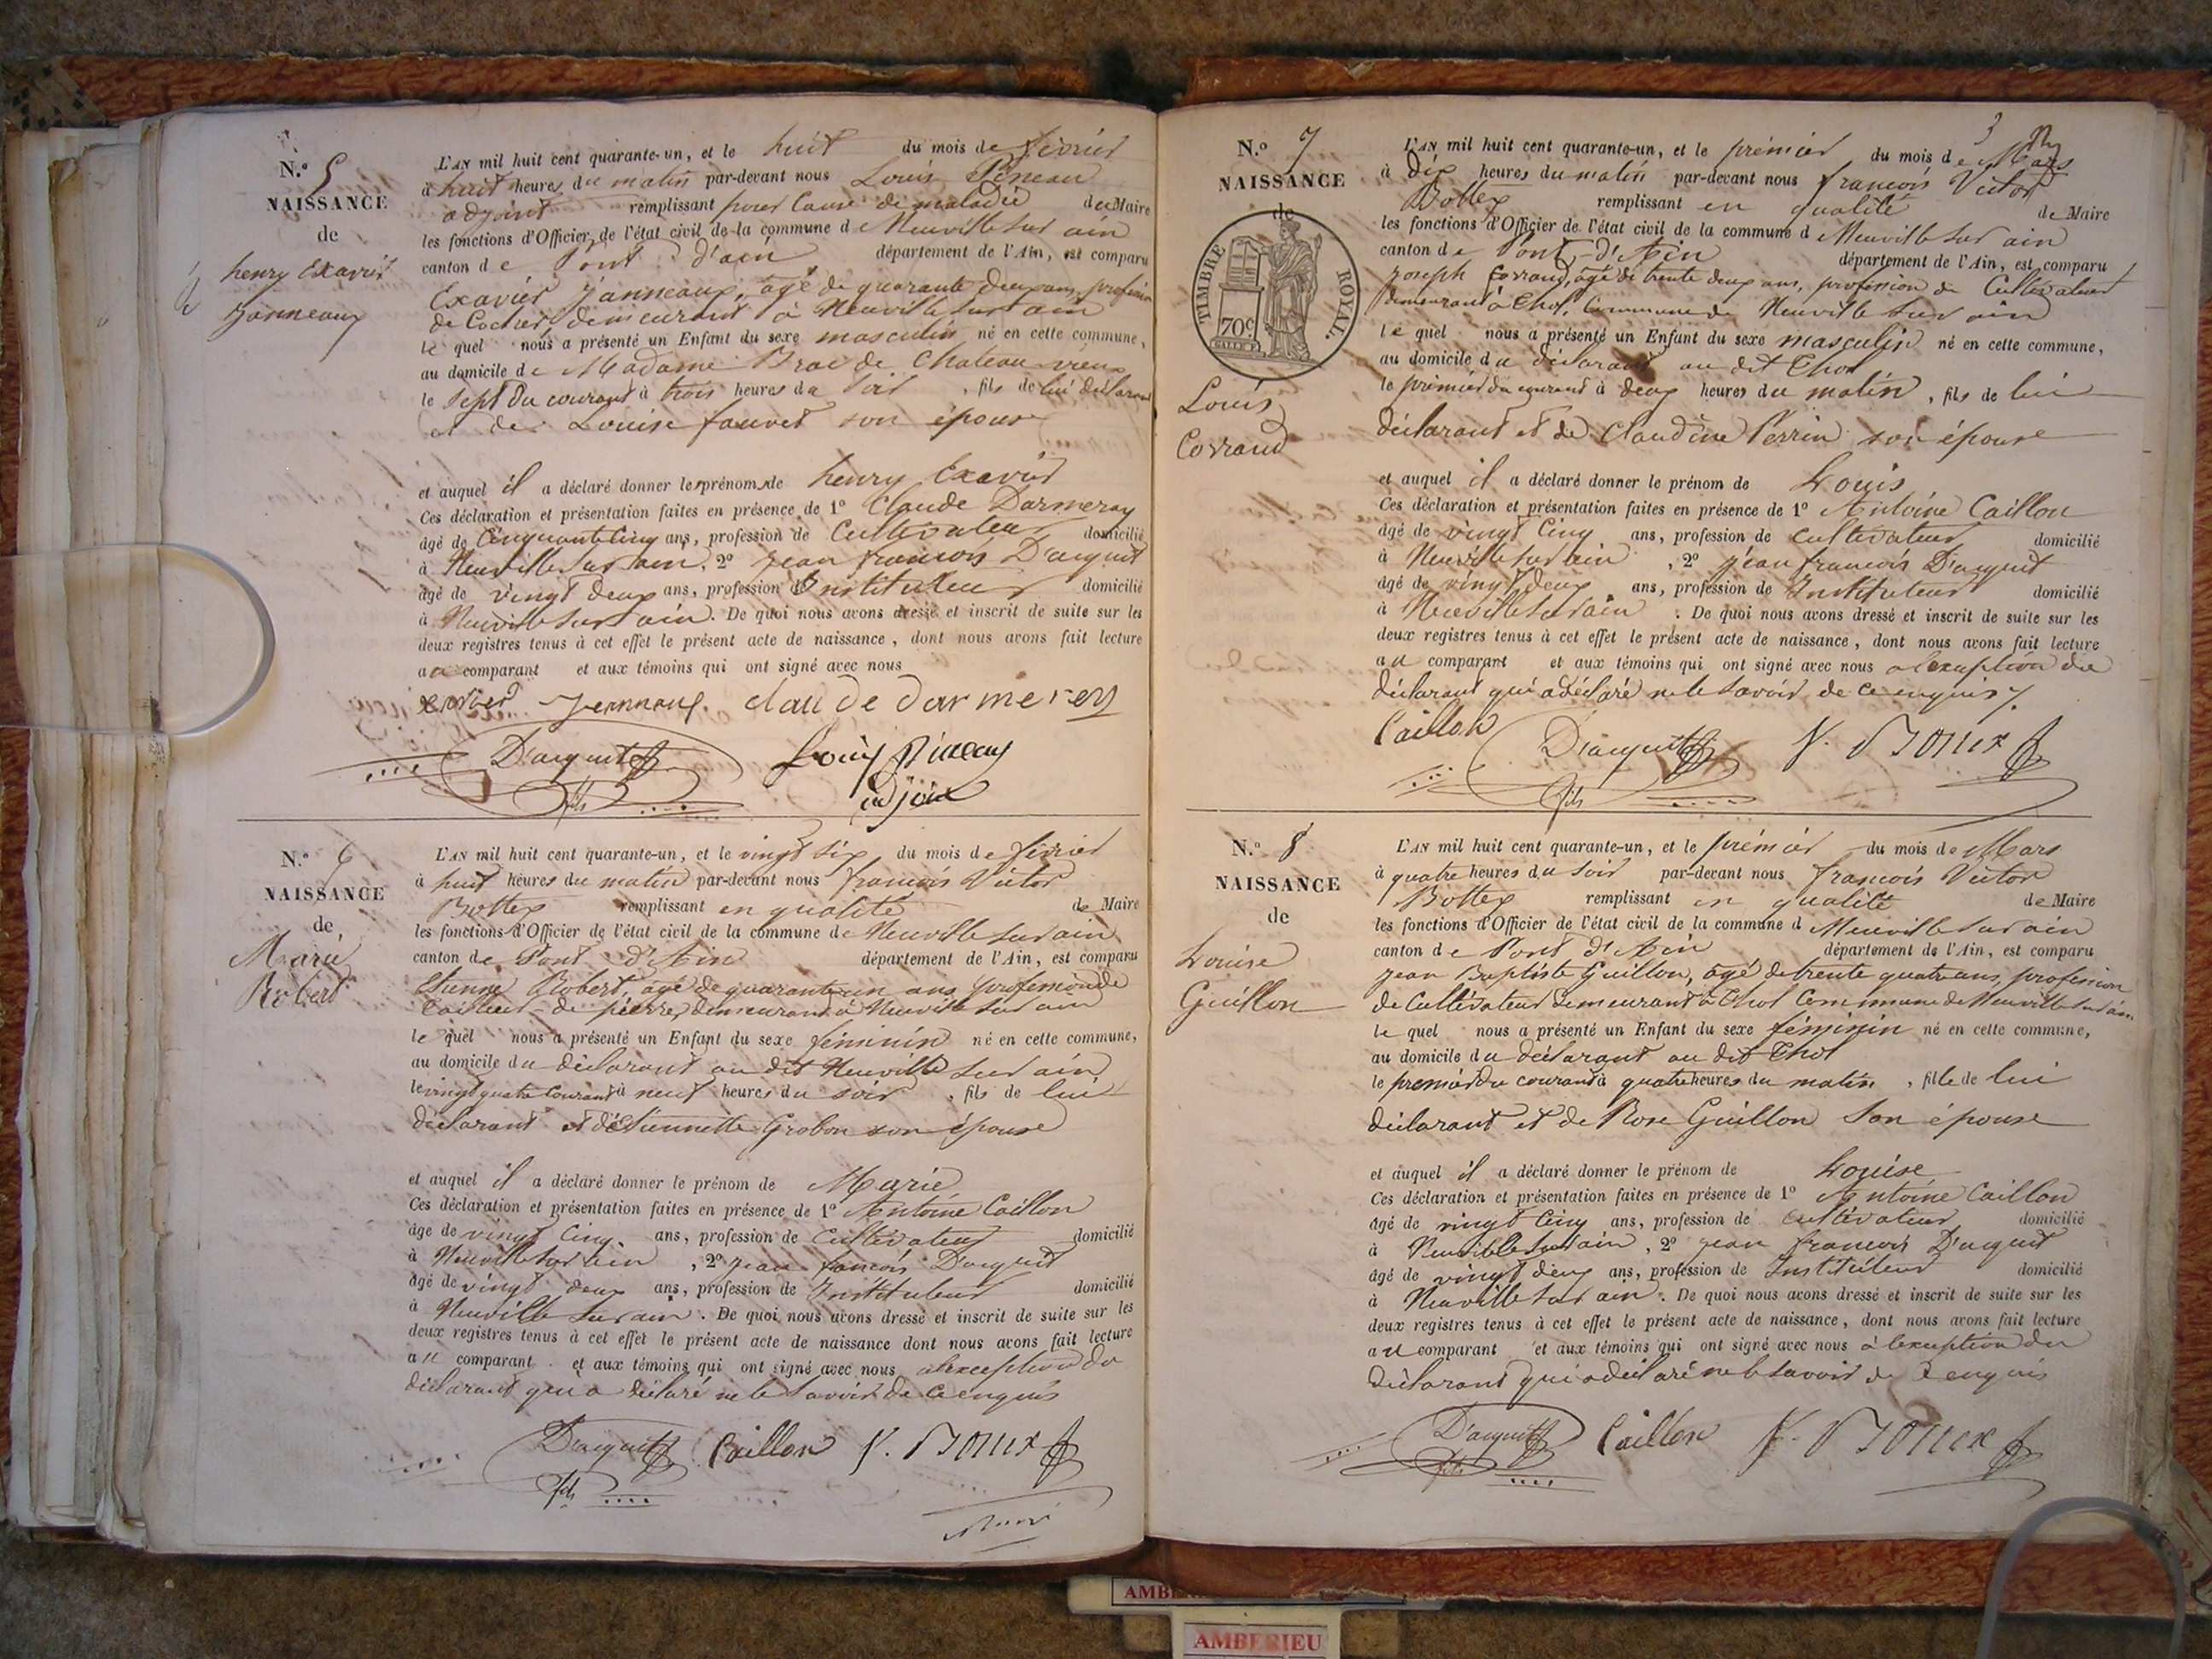 N.º 5
NAISSANCE
de
henry Exavier
Janneaux
L'AN mil huit cent quarante-un, et le huit du mois de février
à huit heures du matin par-devant nous Louis Pineau
adjoint remplissant pour cause de maladie du Maire
les fonctions d'Officier de l'état civil de la commune de Neuville sur ain
canton de Pont d'ain département de l'Ain, est comparu
Exavier Janneaux, âgé de quarante deux ans, profession
de Cocher demeurant à Neuville sur ain
le quel nous a présenté un Enfant du sexe masculin né en cette commune,
au domicile de Madame Brac de Chateau vieux
le sept du courant à trois heures du soir, fils de lui déclarant
et de Louise fauvet son épouse
et auquel il a déclaré donner les prénoms de henry Exavier
Ces déclaration et présentation faites en présence de 1º Claude Darmeray
âgé de Cinquante Cinq ans, profession de Cultivateur domicilié
à Neuville sur ain. 2º jean françois D'acquit
âgé de vingt deux ans, profession d'Instituteur domicilié
à Neuville sur ain. De quoi nous avons dressé et inscrit de suite sur les
deux registres tenus à cet effet le présent acte de naissance, dont nous avons fait lecture
au comparant et aux témoins qui ont signé avec nous
claude darmerey
D'acquit Louis Pineau
fils adjoint
N.º 6
NAISSANCE
de
Marie
Robert
L'AN mil huit cent quarante-un, et le vingt six du mois de février
à huit heures du matin par-devant nous françois Victor
Bottex remplissant en qualité de Maire
les fonctions d'Officier de l'état civil de la commune de Neuville sur ain
canton de Pont d'Ain département de l'Ain, est comparu
Etienne Robert, âgé de quarante un ans profession de
tailleur de pierre, demeurant à Neuville sur ain
le quel nous a présenté un Enfant du sexe féminin né en cette commune,
au domicile du déclarant au dit Neuville sur ain
le vingt quatre courant à neuf heures du soir, fils de lui
déclarant et d'Etiennette Grobon son épouse
et auquel il a déclaré donner le prénom de Marie
Ces déclaration et présentation faites en présence de 1º Antoine Caillon
âgé de vingt Cinq ans, profession de Cultivateur domicilié
à Neuville sur ain, 2º jean françois D'acquit
âgé de vingt deux ans, profession de Instituteur domicilié
à Neuville sur ain. De quoi nous avons dressé et inscrit de suite sur les
deux registres tenus à cet effet le présent acte de naissance dont nous avons fait lecture
au comparant et aux témoins qui ont signé avec nous à l'exception du
déclarant qui a déclaré ne le savoir de ce enquis
D'acquit Caillon V. Bottex
fils
3
N.º 7
NAISSANCE
de
TIMBRE ROYAL.
70c
Louis
Corrand
L'AN mil huit cent quarante-un, et le prémier du mois de Mars
à dix heures du matin par-devant nous françois Victor
Bottex remplissant en qualité de Maire
les fonctions d'Officier de l'état civil de la commune de Neuville sur ain
canton de Pont-d'Ain département de l'Ain, est comparu
joseph Corrand, âgé de trente deux ans, profession de Cultivateur
demeurant à Thol, Commune de Neuville sur ain
le quel nous a présenté un Enfant du sexe masculin né en cette commune,
au domicile du déclarant au dit Thol
le prémier du courant à deux heures du matin, fils de lui
déclarant et de Claudine Perrin son épouse
et auquel il a déclaré donner le prénom de Louis
Ces déclaration et présentation faites en présence de 1º Antoine Caillon
âgé de vingt Cinq ans, profession de cultivateur domicilié
à Neuville sur ain, 2º jean françois D'acquit
âgé de vingt deux ans, profession de Instituteur domicilié
à Neuville sur ain. De quoi nous avons dressé et inscrit de suite sur les
deux registres tenus à cet effet le présent acte de naissance, dont nous avons fait lecture
au comparant et aux témoins qui ont signé avec nous à l'exception du
déclarant qui a déclaré ne le savoir de ce enquis
Caillon D'acquit V. Bottex
fils
N.º 8
NAISSANCE
de
Louise
Guillon
L'AN mil huit cent quarante-un, et le prémier du mois de Mars
à quatre heures du soir par-devant nous françois Victor
Bottex remplissant en qualité de Maire
les fonctions d'Officier de l'état civil de la commune d Neuville sur ain
canton de Pont d'Ain département de l'Ain, est comparu
jean Baptiste Guillon, âgé de trente quatre ans, profession
de Cultivateur demeurant à Thol Commune de Neuville sur ain
le quel nous a présenté un Enfant du sexe féminin né en cette commune,
au domicile du déclarant au dit Thol
le premier du courant à quatre heures du matin, fille de lui
déclarant et de Rose Guillon son épouse
et auquel il a déclaré donner le prénom de Louise
Ces déclaration et présentation faites en présence de 1º Antoine Caillon
âgé de vingt Cinq ans, profession de Cultivateur domicilié
à Neuville sur ain, 2º jean françois D'acquit
âgé de vingt deux ans, profession de Instituteur domicilié
à Neuville sur ain. De quoi nous avons dressé et inscrit de suite sur les
deux registres tenus à cet effet le présent acte de naissance, dont nous avons fait lecture
au comparant et aux témoins qui ont signé avec nous à l'exception du
déclarant qui a déclaré ne le savoir de ce enquis
D'acquit Caillon V. Bottex
fils
AMBERIEU